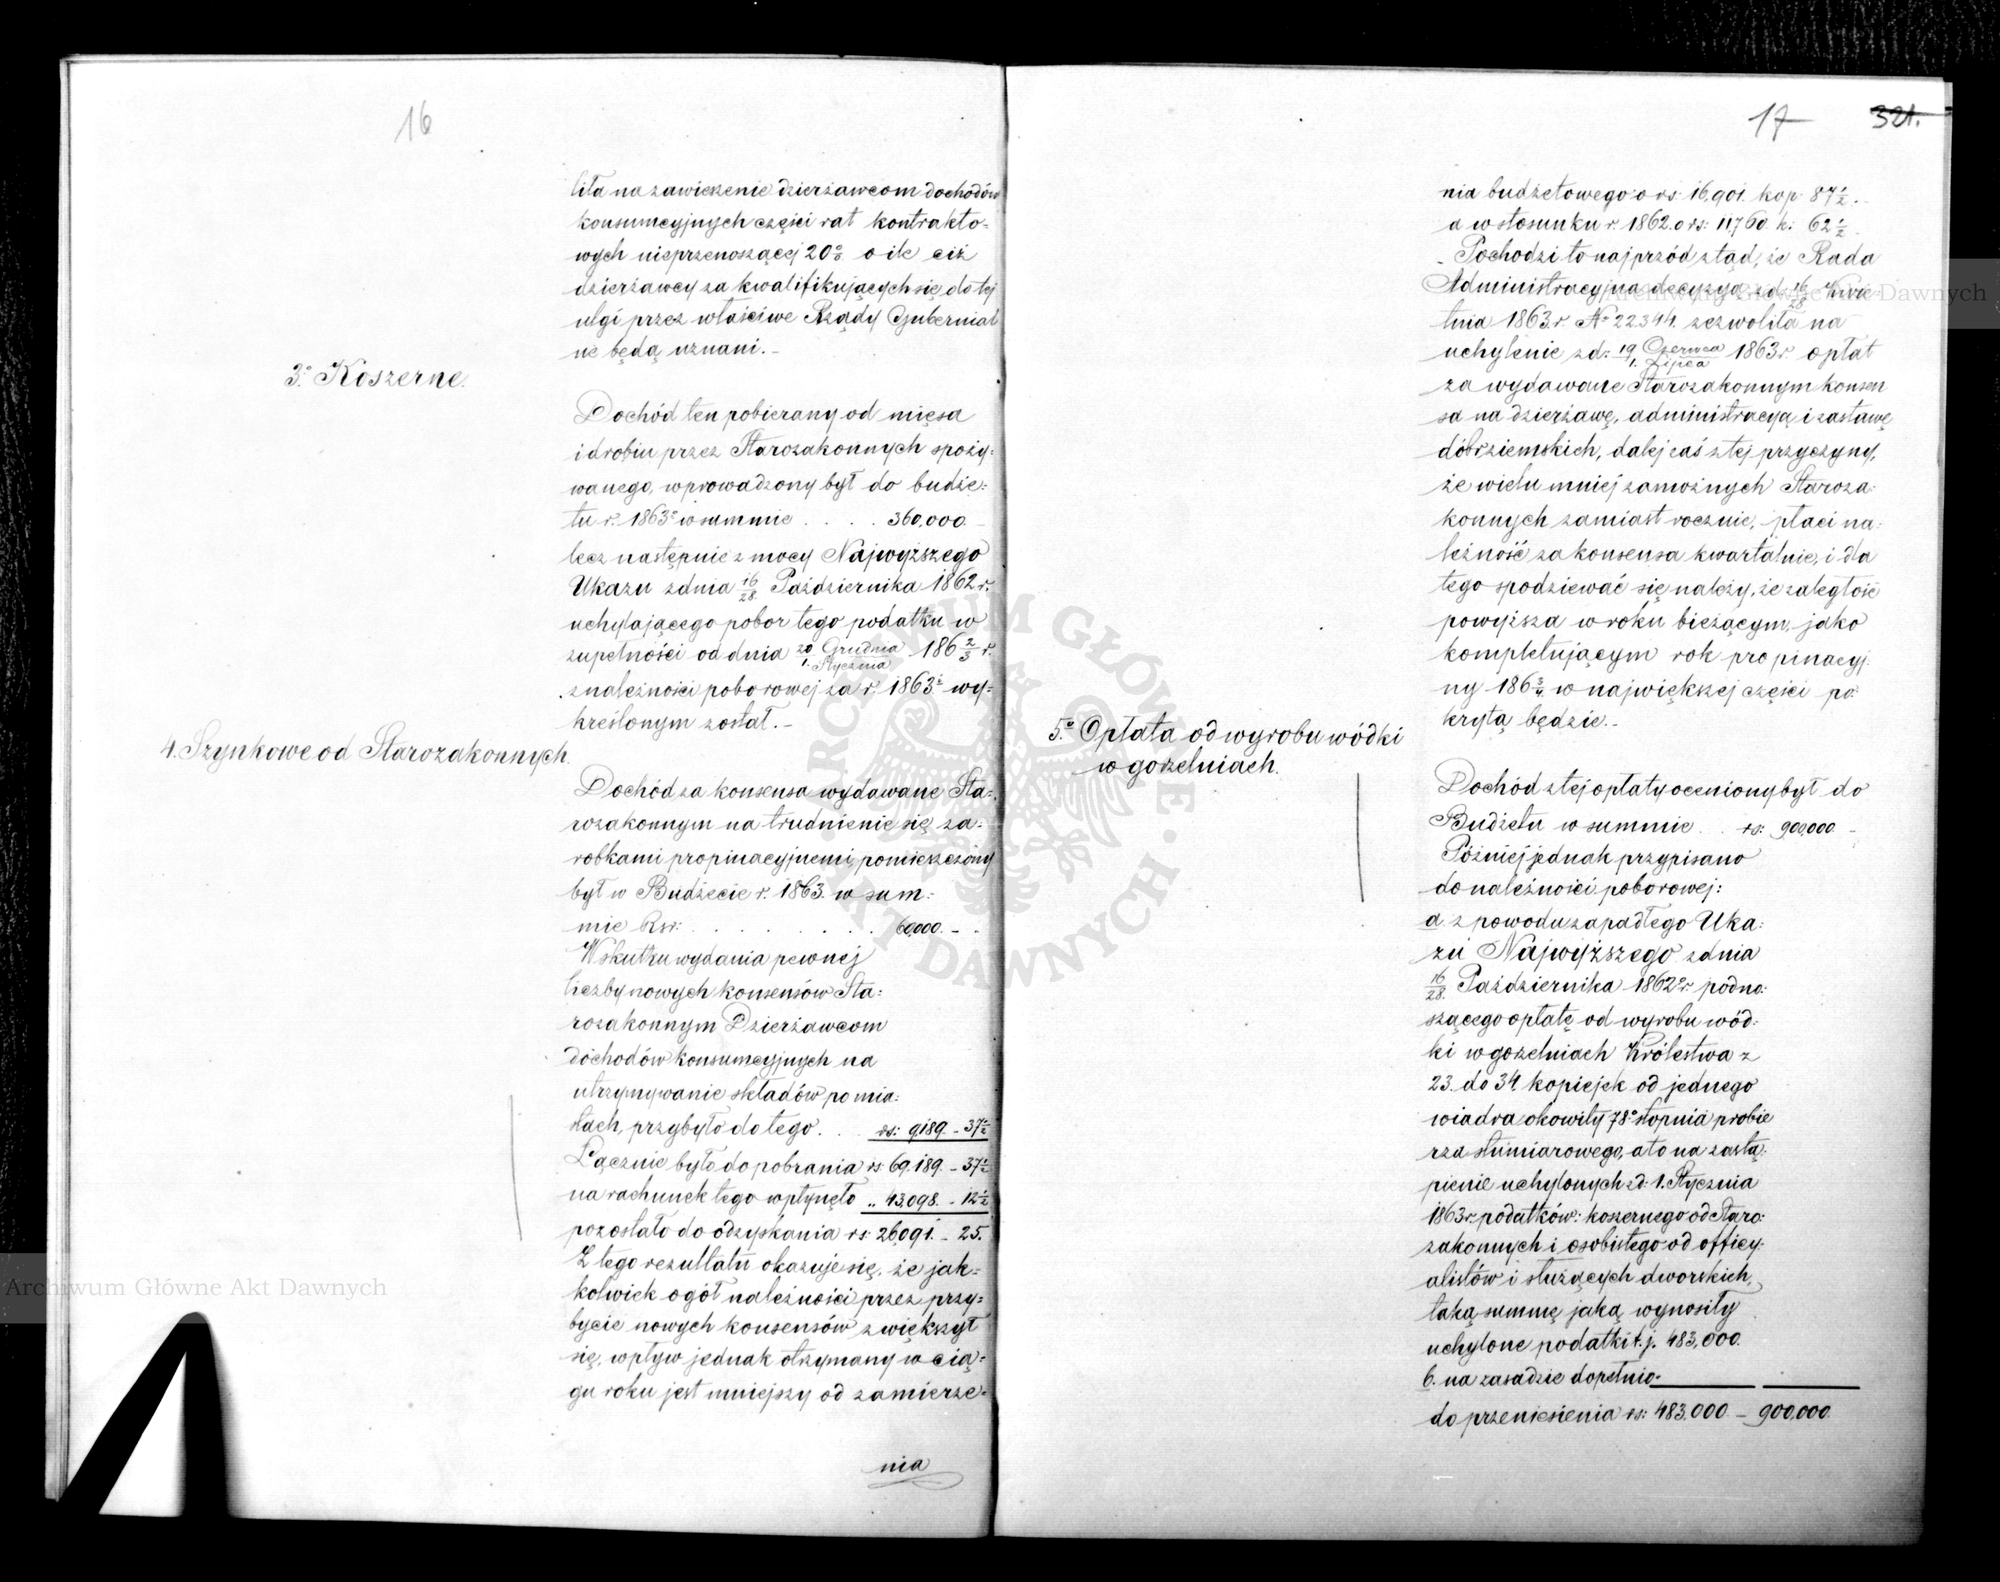 16
liła na zawieszenie dzierżawcom dochodów
konsumcyjnych części rat kontrakto-
wych nieprzenoszącej 20% o ile ciż
dzierżawcy za kwalifikujących się do tej
ulgi przez właściwe Rządy Gubernial
ne będą uznani.-
3º Koszerne.
Dochód ten pobierany od mięsa
i drobiu przez Starozakonnych spoży-
wanego, wprowadzony był do budże-
tu r. 1863º w summie . . . . 360,000.-
lecz następnie z mocy Najwyższego
Ukazu z dnia 16/28 Października 1862 r.
uchylającego pobor tego podatku w
zupełności od dnia 20 Grudnia/1. Stycznia 186 2/3 r.
z należności poborowej za r. 1863 wy-
kreślonym został.-
4. Szynkowe od Starozakonnych.
Dochód za konsensa wydawane Sta-
rozakonnym na trudnienie się za-
robkami propinacyjnemi pomieszczony
był w Budżecie r. 1863. w sum-
mie Rsr: . . . . . . . . 60,000.-
Wskutku wydania pewnej
liczby nowych konsensów Sta-
rozakonnym Dzierżawcom
dochodów konsumcyjnych na
utrzymywanie składów po mia-
stach, przybyło do tego . . . rs: 9189.- 37½
Łącznie było do pobrania rs 69.189.- 37½
na rachunek tego wpłynęło „ 43,098.- 12½
pozostało do odzyskania rs: 26,091.- 25.
Z tego rezultatu okazuje się, że jak-
kolwiek ogół należności przez przy-
bycie nowych konsensów zwiększył
się, wpływ jednak otrzymany w cią-
gu roku jest mniejszy od zamierze-
nia
17 321.
nia budżetowego o rs: 16,901. kop: 87½.
a w stosunku r. 1862. o rs: 11,760. k: 62½.
Pochodzi to najprzód ztąd, że Rada
Administracyjna decyzyą z d. 16/28 Kwie-
tnia 1863. r. Nº 22344. zezwoliła na
uchylenie z d: 19 Czerwca/1. Lipca 1863 r. opłat
za wydawane Starozakonnym konsen
sa na dzierżawę, administracyą i zastawę
dóbr ziemskich, dalej zaś z tej przyczyny,
że wielu mniej zamożnych Staroza-
konnych zamiast rocznie, płaci na-
leżność za konsensa kwartalnie, i dla
tego spodziewać się należy, że zaległość
powyższa w roku bieżącym, jako
kompletującym rok propinacyj-
ny 186 3/4 w największej części po-
krytą będzie.-
5º Opłata od wyrobu wódki
w gorzelniach.
Dochód z tej opłaty oceniony był do
Budżetu w summie . . rs: 900,000.-
Później jednak przypisano
do należności poborowej:
a. z powodu zapadłego Uka-
zu Najwyższego z dnia
16/28. Października 1862 r. podno-
szącego opłatę od wyrobu wód-
ki w gorzelniach Królestwa z
23. do 34. kopiejek od jednego
wiadra okowity 78º stopnia probie
rza stumiarowego, a to na zastą-
pienie uchylonych z d: 1. Stycznia
1863 r. podatków: koszernego od Staro-
zakonnych i osobistego od officy-
alistów i służących dworskich,
taką summę jaką wynosiły
uchylone podatki t. j. 483,000.
b. na zasadzie dopełnio-
do przeniesienia rs: 483,000 - 900,000.
ARCHIWUM GŁÓWNE AKT DAWNYCH
Archiwum Główne Akt Dawnych
Archiwum Główne Akt Dawnych